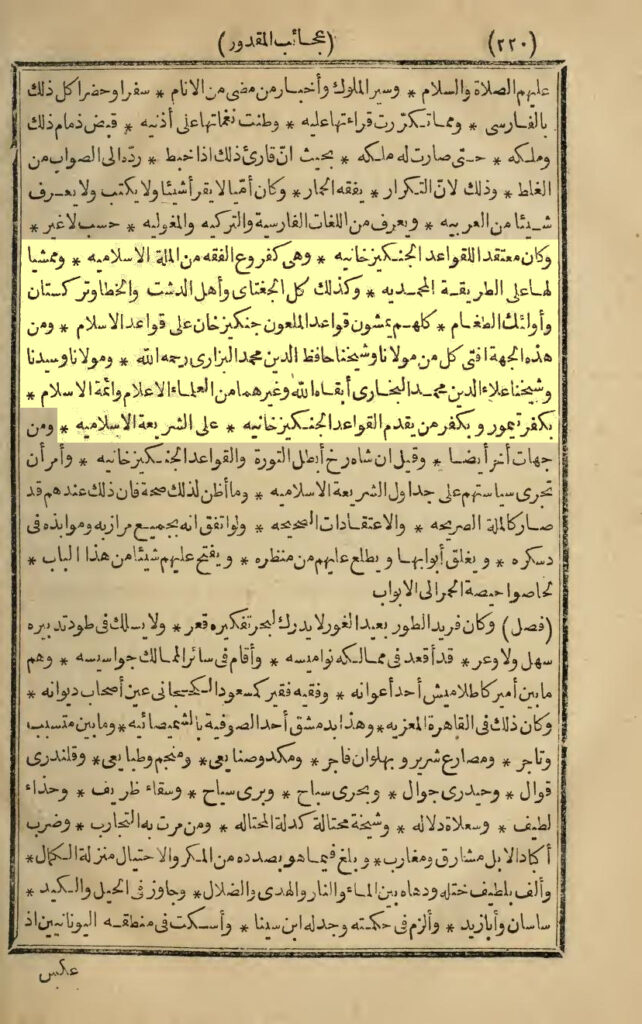 (٢٢٠)
(عجائب المقدور)
عليهم الصلاة والسلام * وسير الملوك وأخبار من مضى من الانام * سفرا وحضرا كل ذلك
بالفارسى * ومما تكررت قراءتها عليه * وطنت نغماتها على أذنيه * قبض زمام ذلك
وملكه * حتى صارت له ملكه * بحيث ان قارئ ذلك اذا خبط * رده الى الصواب من
الغلط * وذلك لان التكرار * يفقه الحمار * وكان أميا لا يقرأ شيئا ولا يكتب ولا يعرف
شيئا من العربيه * ويعرف من اللغات الفارسية والتركيه والمغوليه * حسب لا غير *
وكان معتقد اللقواعد الجنكيزخانيه * وهى كفروع الفقه من الملة الاسلاميه * وممشيا
لها على الطريقة المحمديه * وكذلك كل الجغتاى وأهل الدشت والخطا وتركستان
وأولئك الطغام * كلهم يمشون قواعد الملعون جنكيزخان على قواعد الاسلام * ومن
هذه الجهة افتى كل من مولانا وشيخنا حافظ الدين محمد البزازى رحمه الله * ومولانا وسيدنا
وشيخنا علاء الدين محمد البخارى أبقاه الله وغيرهما من العلماء الاعلام وائمة الاسلام *
بكفر تيمور وبكفر من يقدم القواعد الجنكيزخانيه * على الشريعة الاسلاميه * ومن
جهات أخر أيضا * وقيل ان شاه رخ أبطل التورة والقواعد الجنكيزخانيه * وأمر أن
تجرى سياستهم على جداول الشريعة الاسلاميه * وما أظن لذلك صحة فان ذلك عندهم قد
صار كالملة الصريحه * والاعتقادات الصحيحه * ولو اتفق انه يجمع مرازبه وموابذه فى
دسكره * ويغلق أبوابها ويطلع عليهم من منظره * ويفتح عليهم شيئا من هذا الباب *
لحاصوا حيصة الحمر الى الابواب
(فصل) وكان فريد الطور بعيد الغور لا يدرك لبحر تفكيره قعر * ولا يسلك فى طود تدبيره
سهل ولا وعر * قد أقعد فى ممالكه نواميسه * وأقام فى سائر الممالك جواسيسه * وهم
ما بين أمير كاطلاميش أحد أعوانه * وفقيه فقير كمسعود الكججانى عين أصحاب ديوانه *
وكان ذلك فى القاهرة المعزيه * وهذا بدمشق أحد الصوفية بالشميصاتيه * وما بين متسبب
وتاجر * ومصارع شرير وبهلوان فاجر * ومكد وصنايعى * ومنجم وطبايعى * وقلندرى
قوال * وحيدرى جوال * وبحرى سباح * وبرى سياح * وسقاء ظريف * وحذاء
لطيف * وسعلاة دلاله * وشيخة محتالة كدلة المحتاله * ومن مرت به التجارب * وضرب
أكباد الابل مشارق ومغارب * وبلغ فيما هو بصدده من المكر والاحتيال منزلة الكمال *
وألف بلطيف ختله ودهاه بين الماء والنار والهدى والضلال * وجاوز فى الحيل والكيد *
ساسان وأبا زيد * وألزم فى حكمته وجدله ابن سينا * وأسكت فى منطقه اليونانيين اذ
عكس